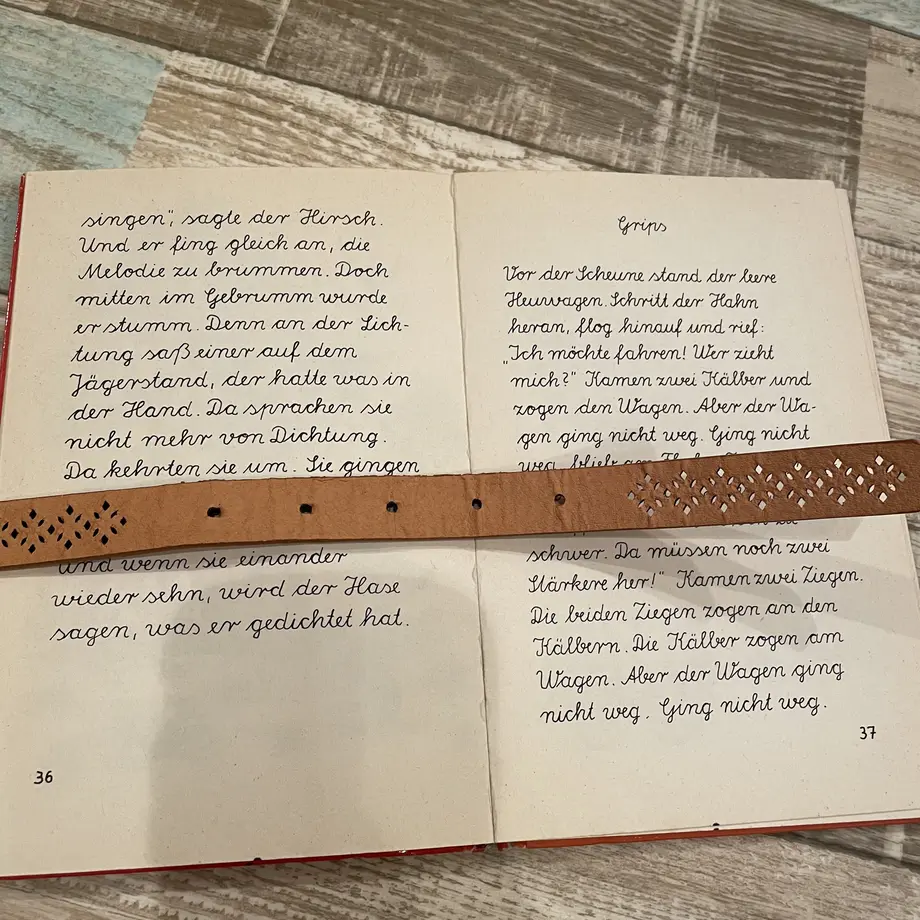 singen“, sagte der Hirsch.
Und er fing gleich an, die
Melodie zu brummen. Doch
mitten im Gebrumm wurde
er stumm. Denn an der Lich-
tung saß einer auf dem
Jägerstand, der hatte was in
der Hand. Da sprachen sie
nicht mehr von Dichtung.
Da kehrten sie um. Sie gingen
und wenn sie einander
wieder sehn, wird der Hase
sagen, was er gedichtet hat.
36
Grips
Vor der Scheune stand der leere
Heuwagen. Schritt der Hahn
heran, flog hinauf und rief:
„Ich möchte fahren! Wer zieht
mich?“ Kamen zwei Kälber und
zogen den Wagen. Aber der Wa-
gen ging nicht weg. Ging nicht
weg, blieb am
zu
schwer. Da müssen noch zwei
Stärkere her!“ Kamen zwei Ziegen.
Die beiden Ziegen zogen an den
Kälbern. Die Kälber zogen am
Wagen. Aber der Wagen ging
nicht weg. Ging nicht weg.
37